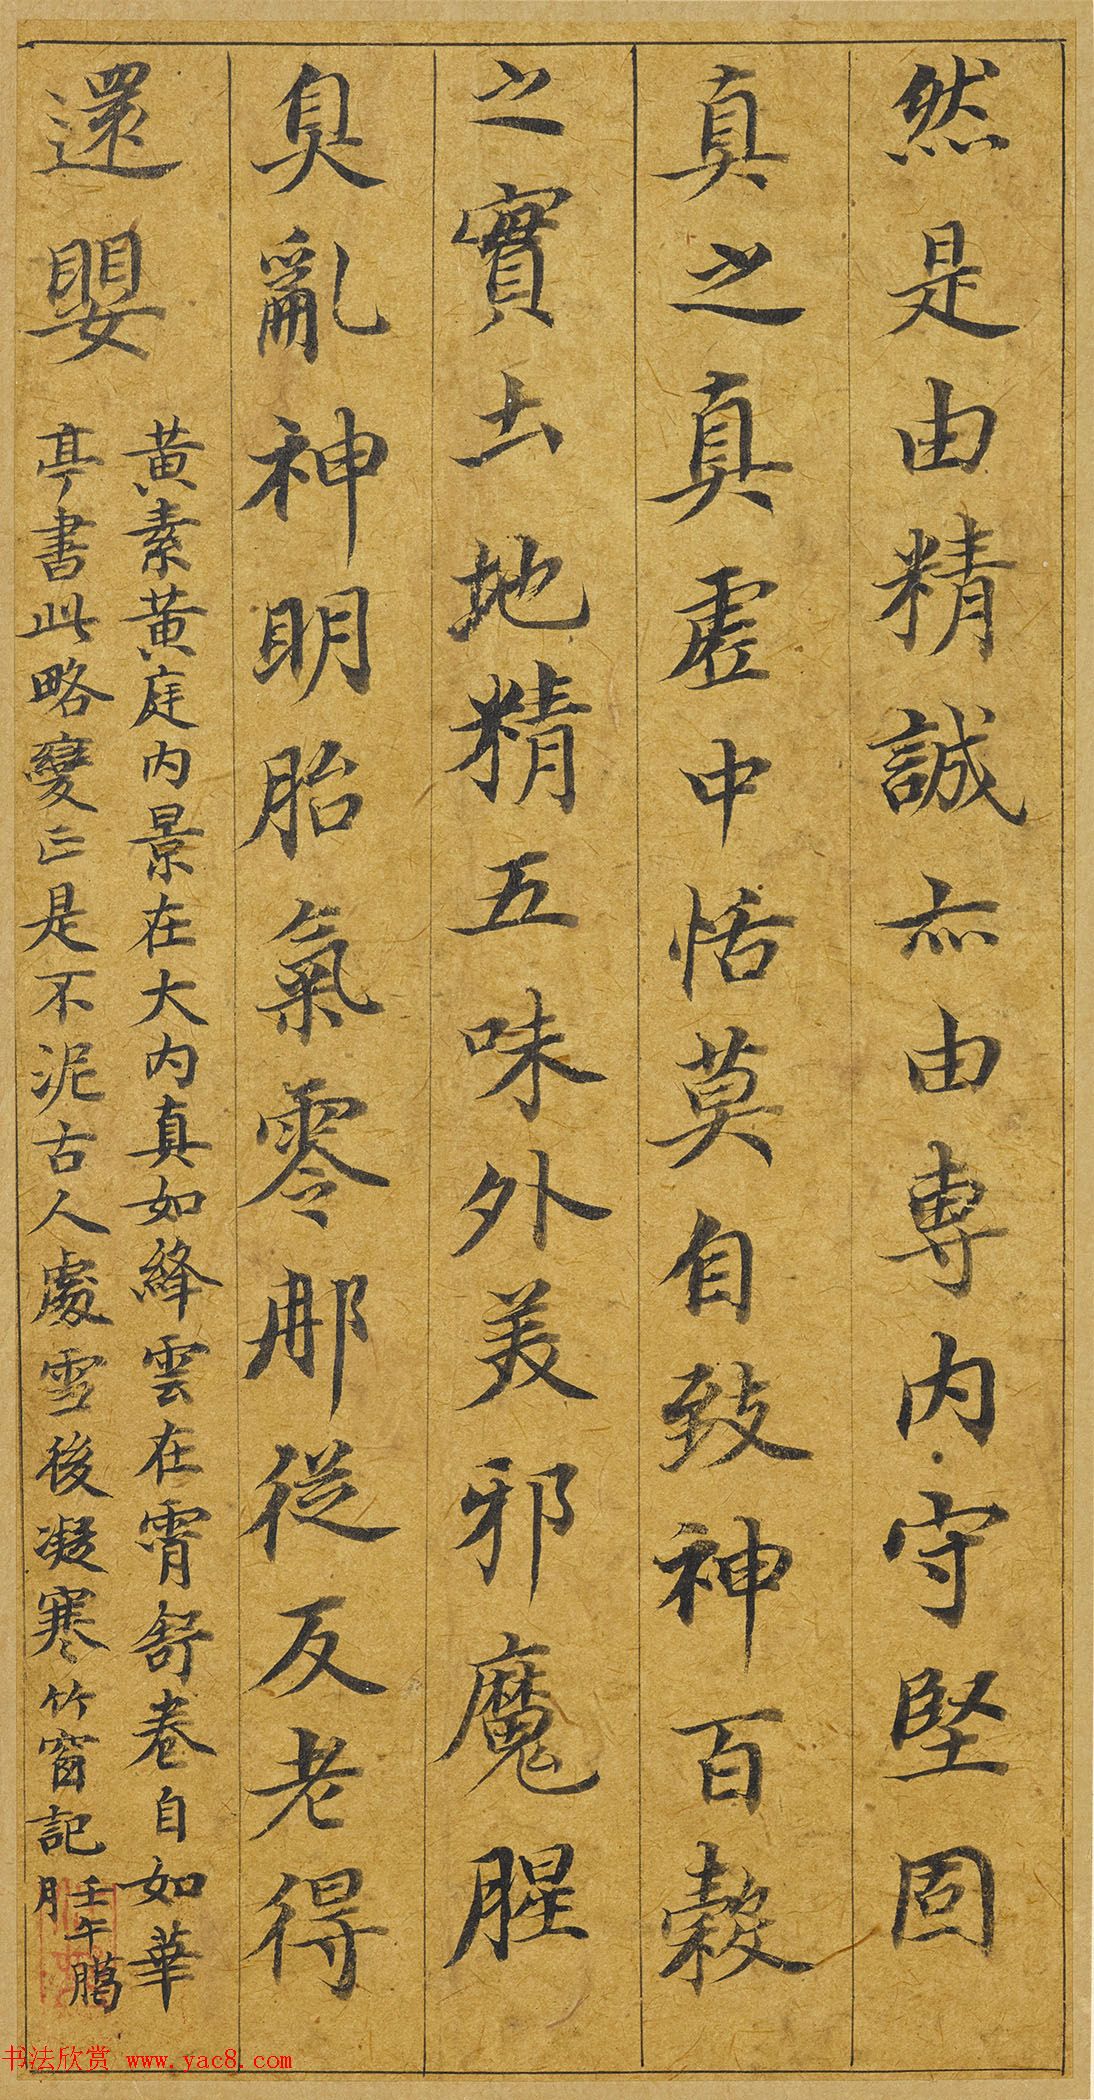 然是由精誠亦由專內守堅固
真之真虛中恬莫自致神百穀
之實土地精五味外美邪魔腥
臭亂神明胎氣零那從反老得
還嬰
黃素黃庭內景在大內真如絳雲在霄舒卷自如華
亭書此略變正是不泥古人處雪後凝寒竹窗記
壬午臈
月
书法欣赏 www.yac8.com